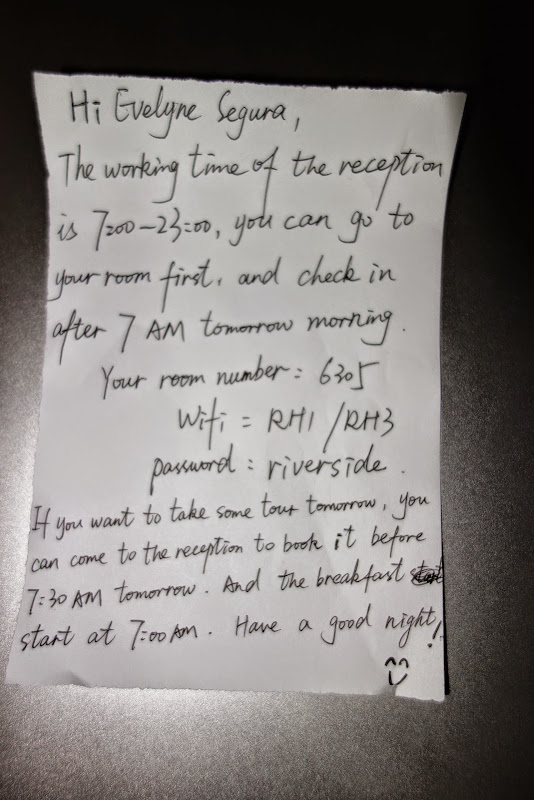 Hi Evelyne Segura,
The working time of the reception
is 7:00-23:00, you can go to
your room first, and check in
after 7 AM tomorrow morning.
Your room number: 6305
Wifi = RH1/RH3
password: riverside.
If you want to take some tour tomorrow, you
can come to the reception to book it before
7:30 AM tomorrow. And the breakfast
start at 7:00 AM. Have a good night!